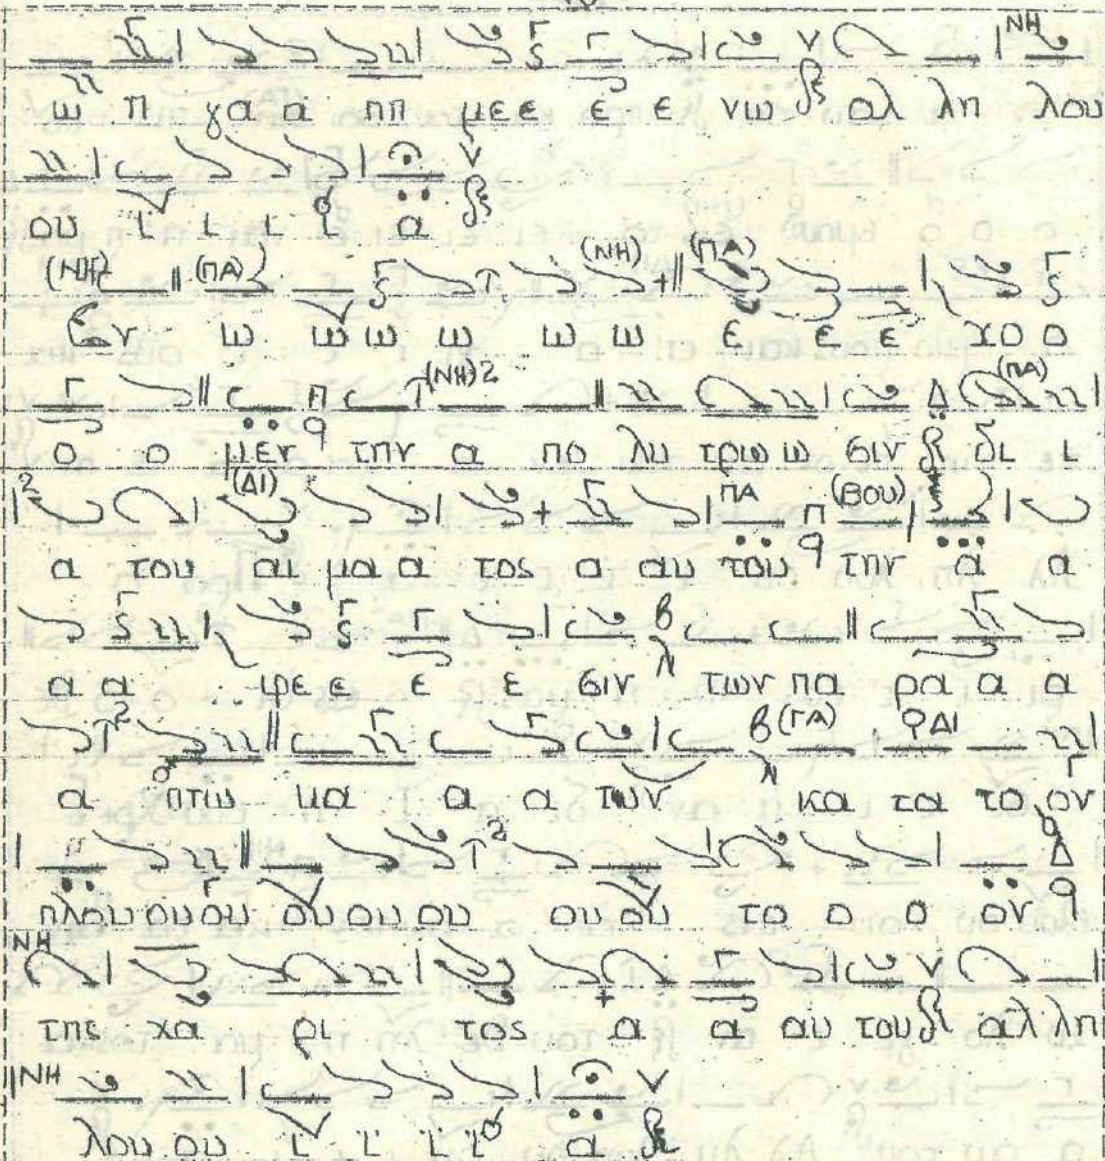 ω η γα α πη με ε ε ε νω αλ λη λου
ου ι ι ι ι α
Εν ω ω ω ω ω ω ε ε ε χο ο
ο ο μεν την α πο λυ τρω ω σιν δι ι
α του αι μα α τος α αυ του την α α
α α φε ε ε ε σιν των πα ρα α α
α πτω μα α α των κα τα το ον
πλου ου ου ου ου ου ου ου το ο ο ον
της χα ρι τος α α αυ του αλ λη
λου ου ι ι ι ι α